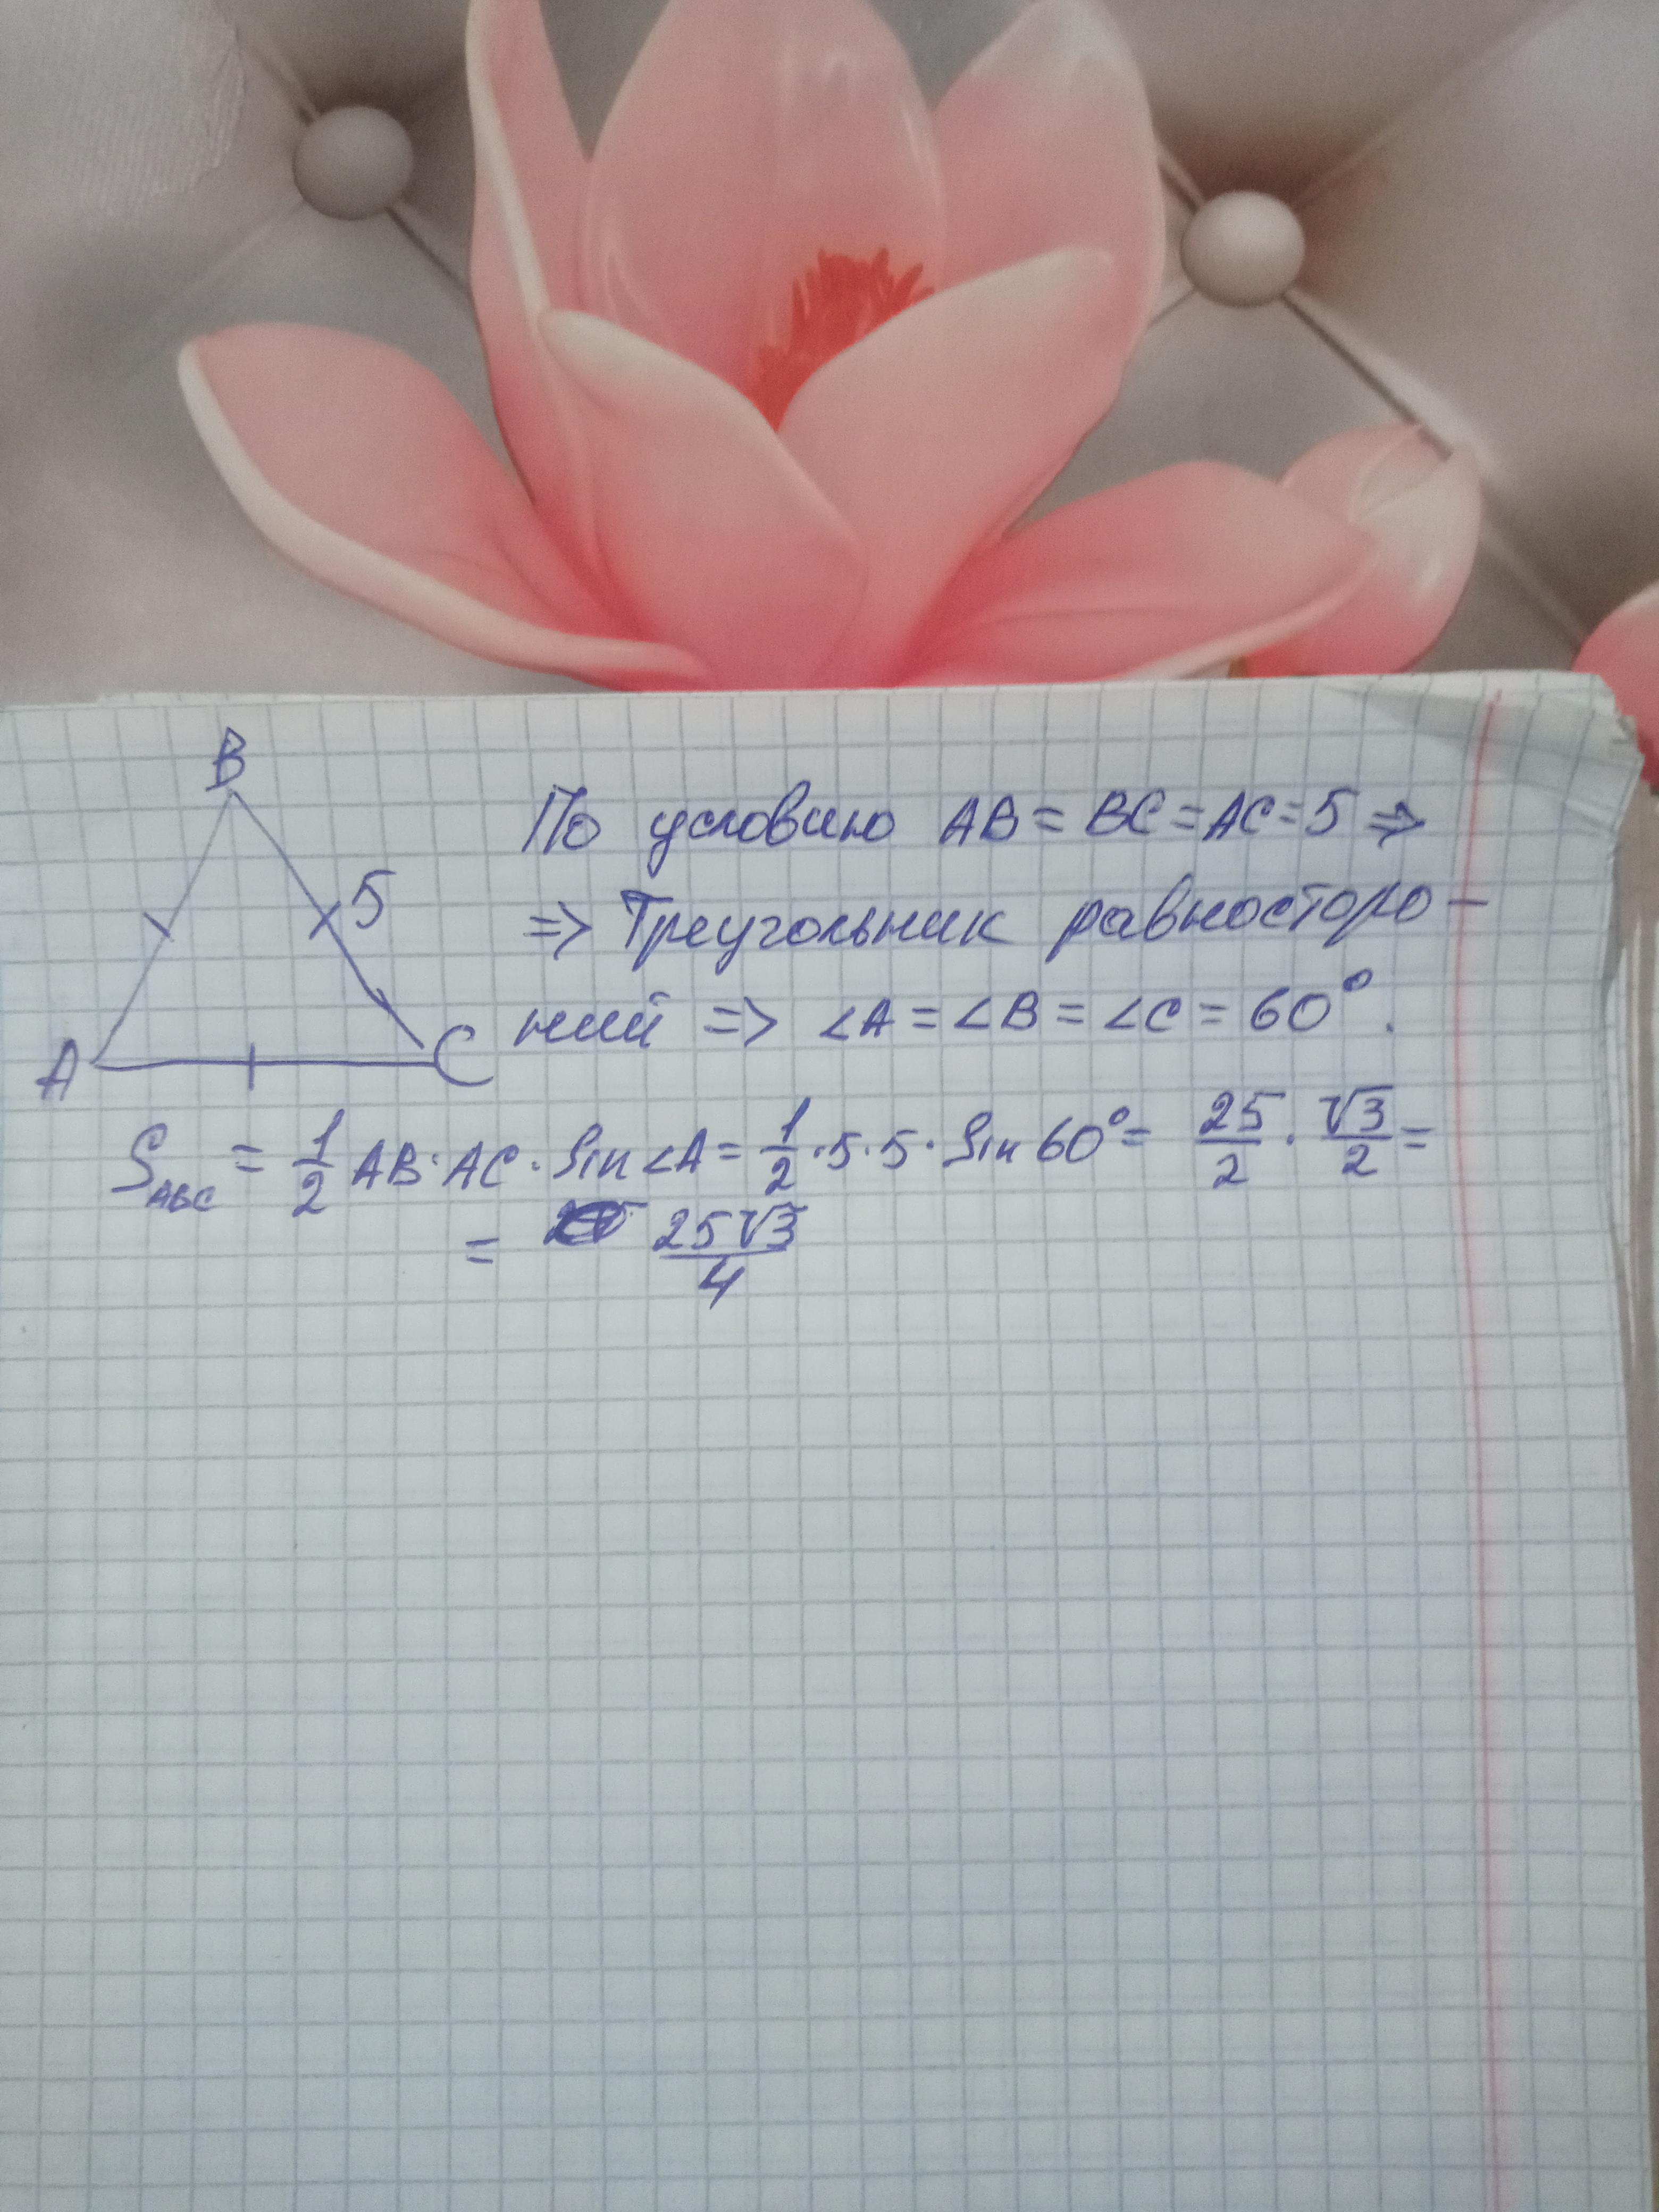 B
5
A
C
По условию AB = BC = AC = 5 =>
=> Треугольник равносторо-
ний => ∠A = ∠B = ∠C = 60°.
S_ABC = 1/2 AB · AC · Sin∠A = 1/2 · 5 · 5 · Sin 60° = 25/2 · √3/2 =
= 25√3/4